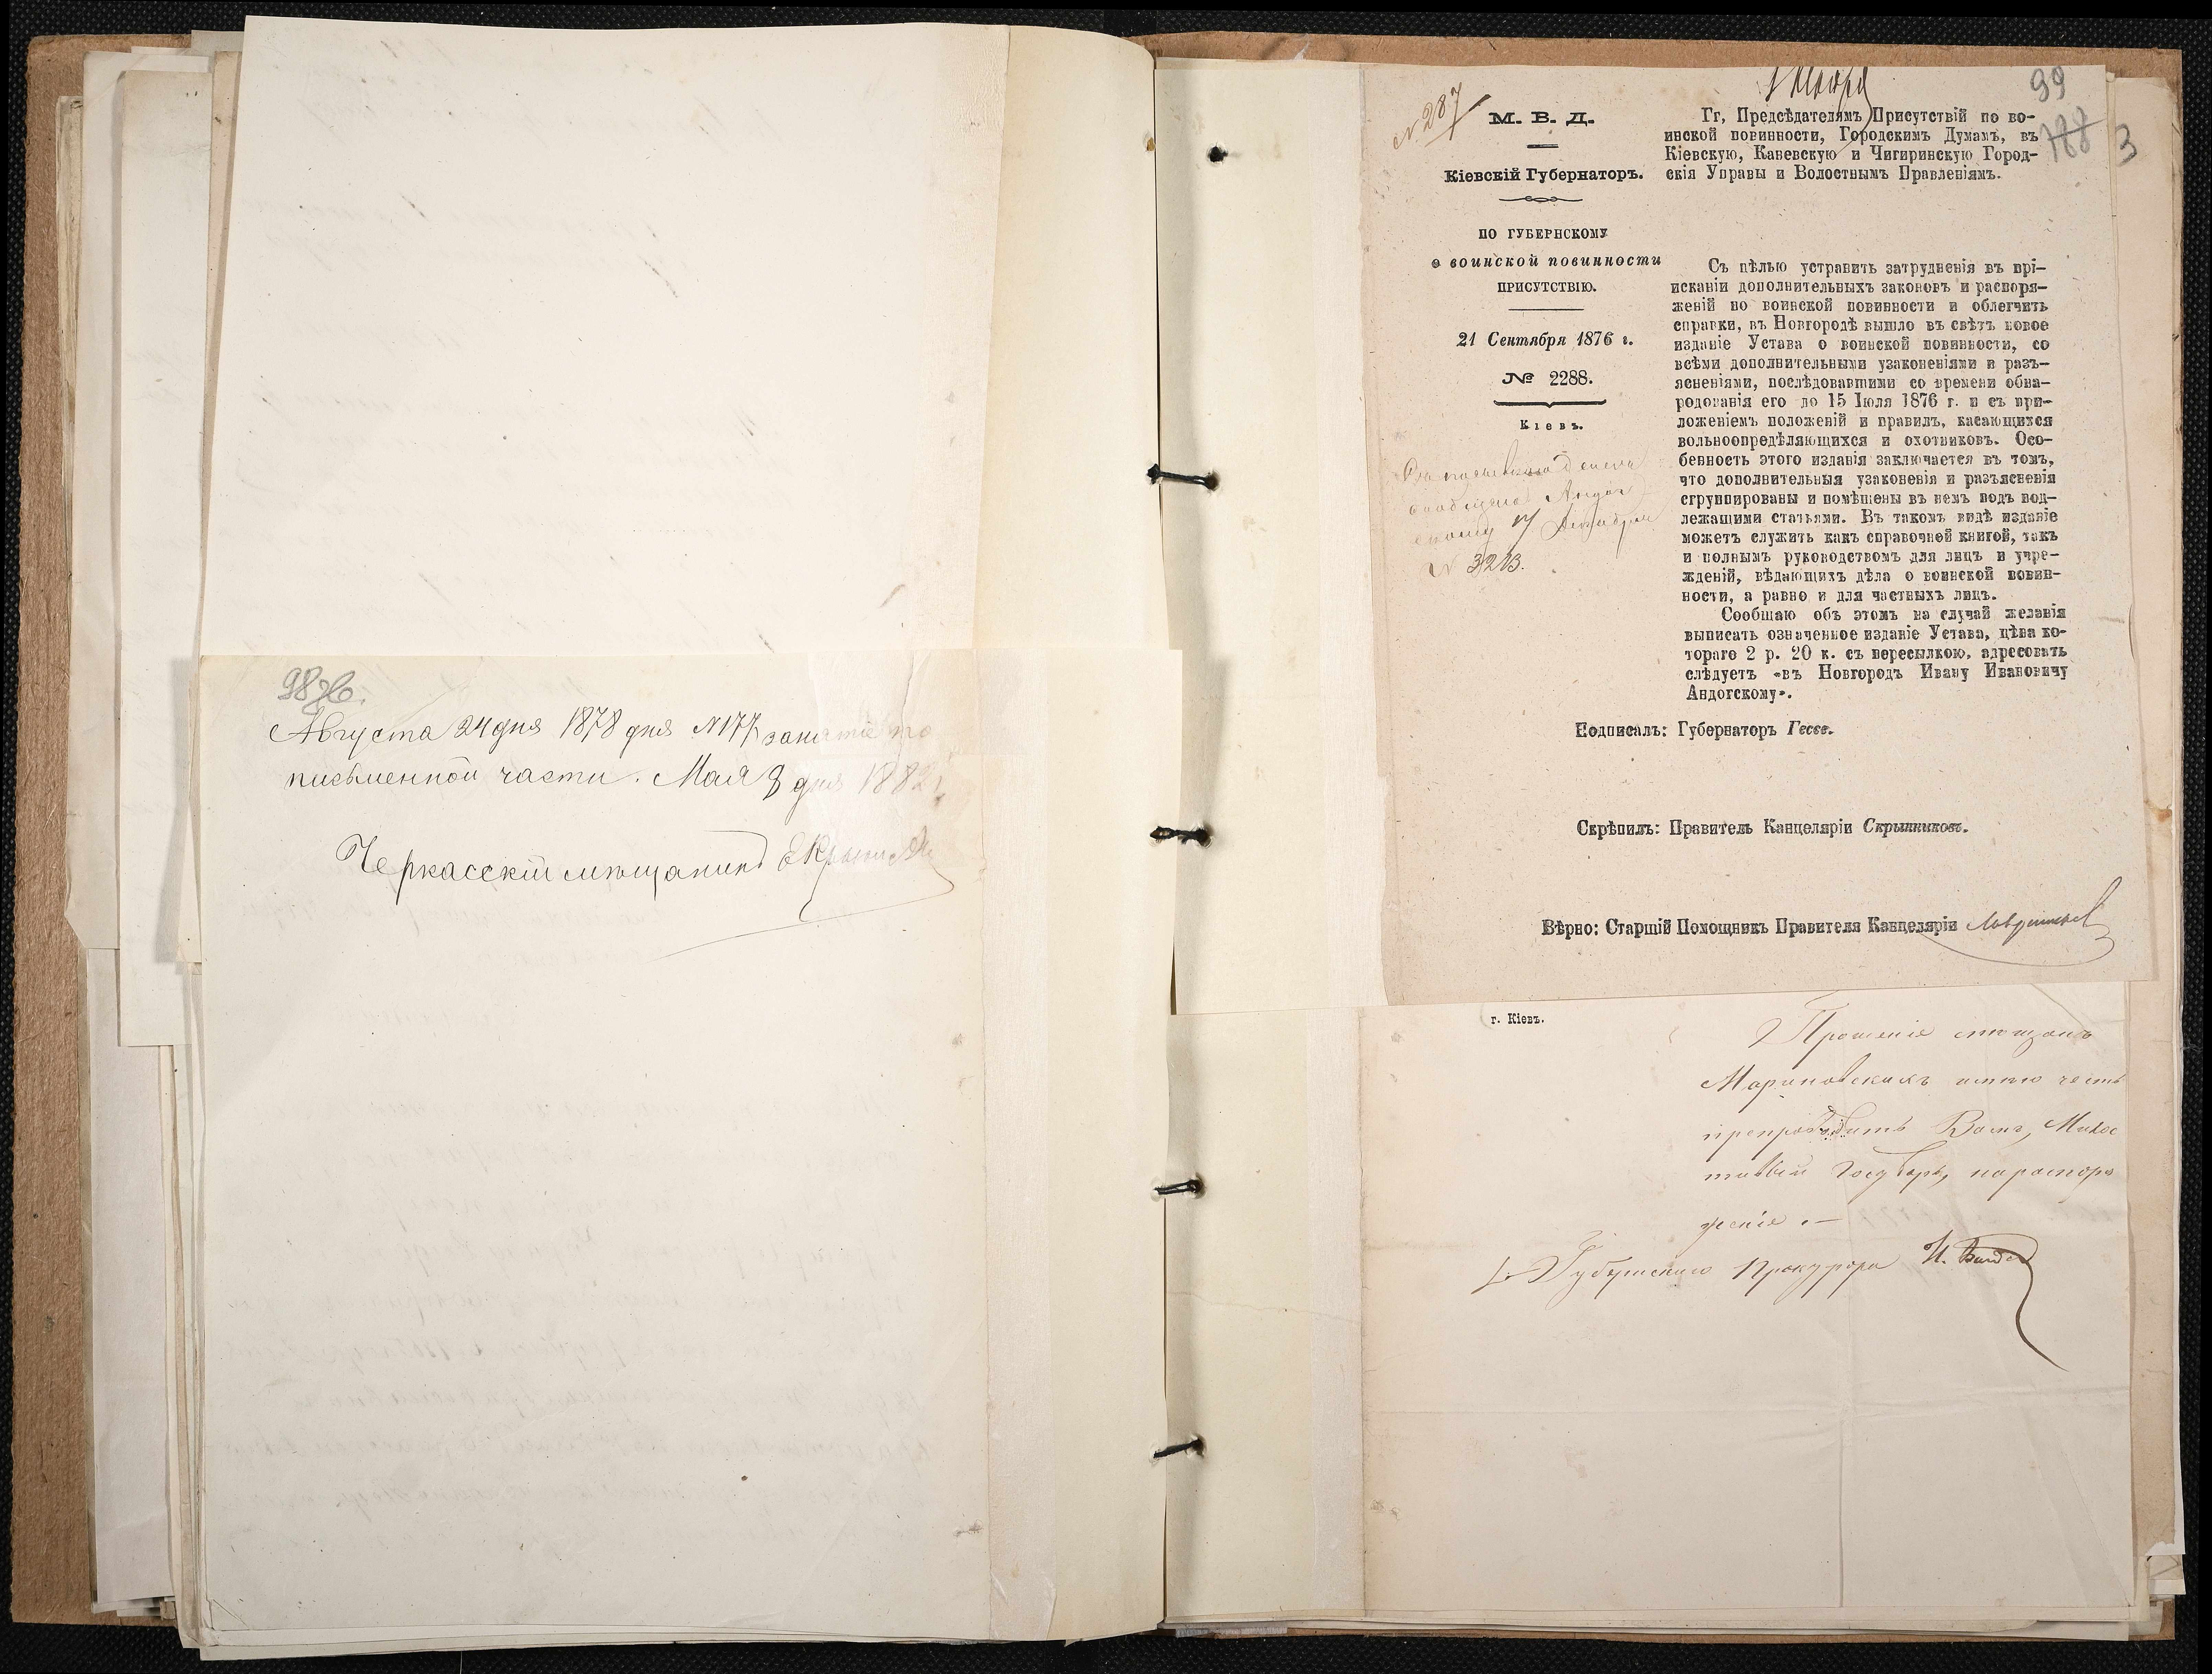 98 об.
Августа 24 дня 1878 дня №177 занятіе по
письменной части. Мая 8 дня 1882
Черкасскій мѣщанинъ
№ 287
М. В. Д.
Кіевскій Губернаторъ.
ПО ГУБЕРНСКОМУ
о воинской повинности
ПРИСУТСТВІЮ.
21 Сентября 1876 г.
№ 2288.
Кіевъ.
№ 3213.
99
188
3
Гг. Предсѣдателямъ Присутствій по во-
инской повинности, Городскимъ Думамъ, въ
Кіевскую, Каневскую и Чигиринскую Город-
скія Управы и Волостнымъ Правленіямъ.
Съ цѣлью устранить затрудненія въ прі-
исканіи дополнительныхъ законовъ и распоря-
женій по воинской повинности и облегчить
справки, въ Новгородѣ вышло въ свѣтъ новое
изданіе Устава о воинской повинности, со
всѣми дополнительными узаконеніями и разъ-
ясненіями, послѣдовавшими со времени обна-
родованія его до 15 Іюля 1876 г. и съ при-
ложеніемъ положеній и правилъ, касающихся
вольноопредѣляющихся и охотниковъ. Осо-
бенность этого изданія заключается въ томъ,
что дополнительныя узаконенія и разъясненія
сгруппированы и помѣщены въ немъ подъ под-
лежащими статьями. Въ такомъ видѣ изданіе
можетъ служить какъ справочной книгой, такъ
и полнымъ руководствомъ для лицъ и учре-
жденій, вѣдающихъ дѣла о воинской повин-
ности, а равно и для частныхъ лицъ.
Сообщаю объ этомъ на случай желанія
выписать означенное изданіе Устава, цѣна ко-
тораго 2 р. 20 к. съ пересылкою, адресовать
слѣдуетъ «въ Новгородъ Ивану Ивановичу
Андогскому».
Подписалъ: Губернаторъ Гессе.
Скрѣпилъ: Правитель Канцеляріи Скрынниковъ.
Вѣрно: Старшій Помощникъ Правителя Канцеляріи
г. Кіевъ.
Прошеніе мѣщанъ
Мариновскихъ имѣю честь
препроводить Вамъ, Милос
тивый Государь, на распоря
женіе.—
Губернскаго Прокурора